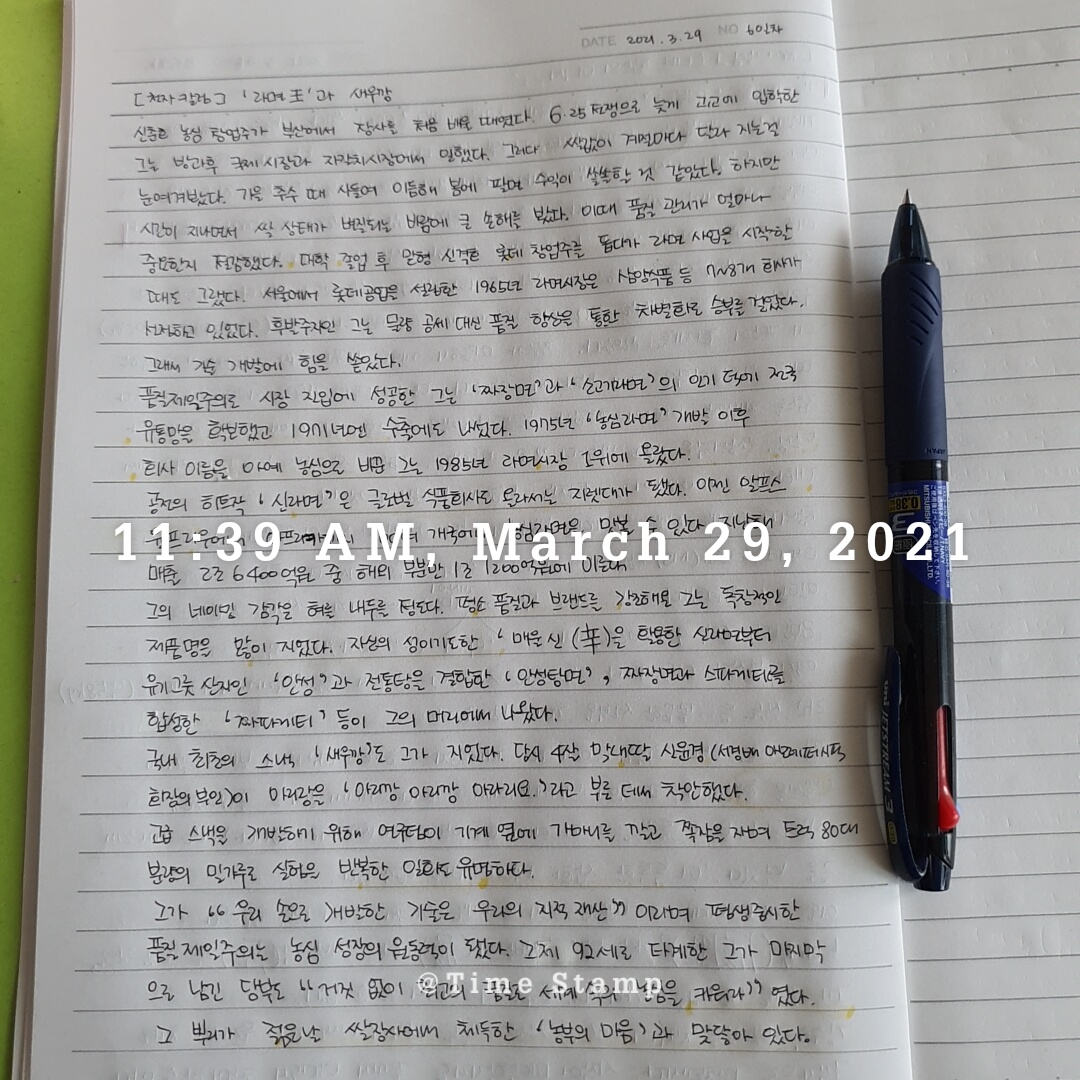 DATE 2021.3.29 NO 6일차
[천자칼럼] '라면王'과 새우깡
신춘호 농심 창업주가 부산에서 장사를 처음 배울 때였다. 6.25전쟁으로 늦게 고교에 입학한
그는 방과후 국제시장과 자갈치시장에서 일했다. 그러다 쌀값이 계절마다 달라지는걸
눈여겨봤다. 가을 추수 때 사들여 이듬해 봄에 팔면 수익이 쏠쏠할 것 같았다. 하지만
시간이 지나면서 쌀 상태가 변질되는 바람에 큰 손해를 봤다. 이때 품질 관리가 얼마나
중요한지 절감했다. 대학 졸업 후 맏형 신격호 롯데 창업주를 돕다가 라면 사업을 시작할
때도 그랬다. 서울에서 롯데공업을 설립한 1965년 라면시장은 삼양식품 등 7~8개 회사가
선점하고 있었다. 후발주자인 그는 물량 공세 대신 품질 향상을 통한 차별화로 승부를 걸었다.
그래서 기술 개발에 힘을 쏟았다.
품질제일주의로 시장 진입에 성공한 그는 '짜장면'과 '소고기라면'의 인기 덕에 전국
유통망을 확보했고 1971년엔 수출에도 나섰다. 1975년 '농심라면' 개발 이후
회사 이름을 아예 농심으로 바꾼 그는 1985년 라면시장 1위에 올랐다.
공전의 히트작 '신라면'은 글로벌 식품회사로 올라서는 지렛대가 됐다. 이젠 알프스
개국에 맛볼 수 있다. 지난해
매출 2조6400억원 중 해외 부문만 1조1200억원에 이른다.
그의 네이밍 감각은 혀를 내두를 정도다. 평소 품질과 브랜드를 강조해온 그는 독창적인
제품명을 많이 지었다. 자신의 성이기도한 '매울 신(辛)을 활용한 신라면부터
유기그릇 산지인 '안성'과 전통탕을 결합한 '안성탕면', 짜장면과 스파게티를
합성한 '짜파게티' 등이 그의 머리에서 나왔다.
국내 최초의 스낵 '새우깡'도 그가 지었다. 당시 4살 막내딸 신윤경(서경배 아모레퍼시픽
회장의 부인)이 아리랑을 '아리깡 아리깡 아라리요.'라고 부른 데서 착안했다.
고급 스낵을 개발하기 위해 연구팀이 기계 옆에 가마니를 깔고 쪽잠을 자며 트럭 80대
분량의 밀가루로 실험을 반복한 일화도 유명하다.
그가 "우리 손으로 개발한 기술은 우리의 지적 재산"이라며 평생중시한
품질제일주의는 농심 성장의 원동력이 됐었다. 그제 92세로 타계한 그가 마지막
으로 남긴 당부도 "거짓 없이 최고의 품질로 세계 속의 농심을 키워라"였다.
그 뿌리가 젊은날 쌀장사에서 체득한 '농부의 마음'과 맞닿아 있다.
11:39 AM, March 29, 2021
@Time Stamp
JAPAN
0.38
MITSUBISHI
uni JETSTREAM 3